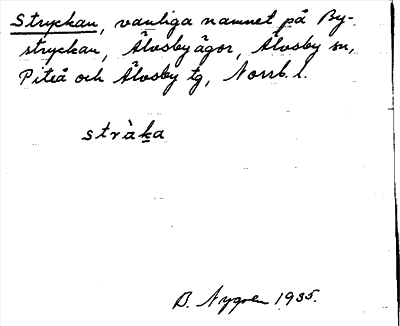 Stryckan, vanliga namnet på By-
stryckan, Älvsby ägor, Älvsby sn,
Piteå och Älvsby tg, Norrb. l.
stràka
B. Nygren 1935.